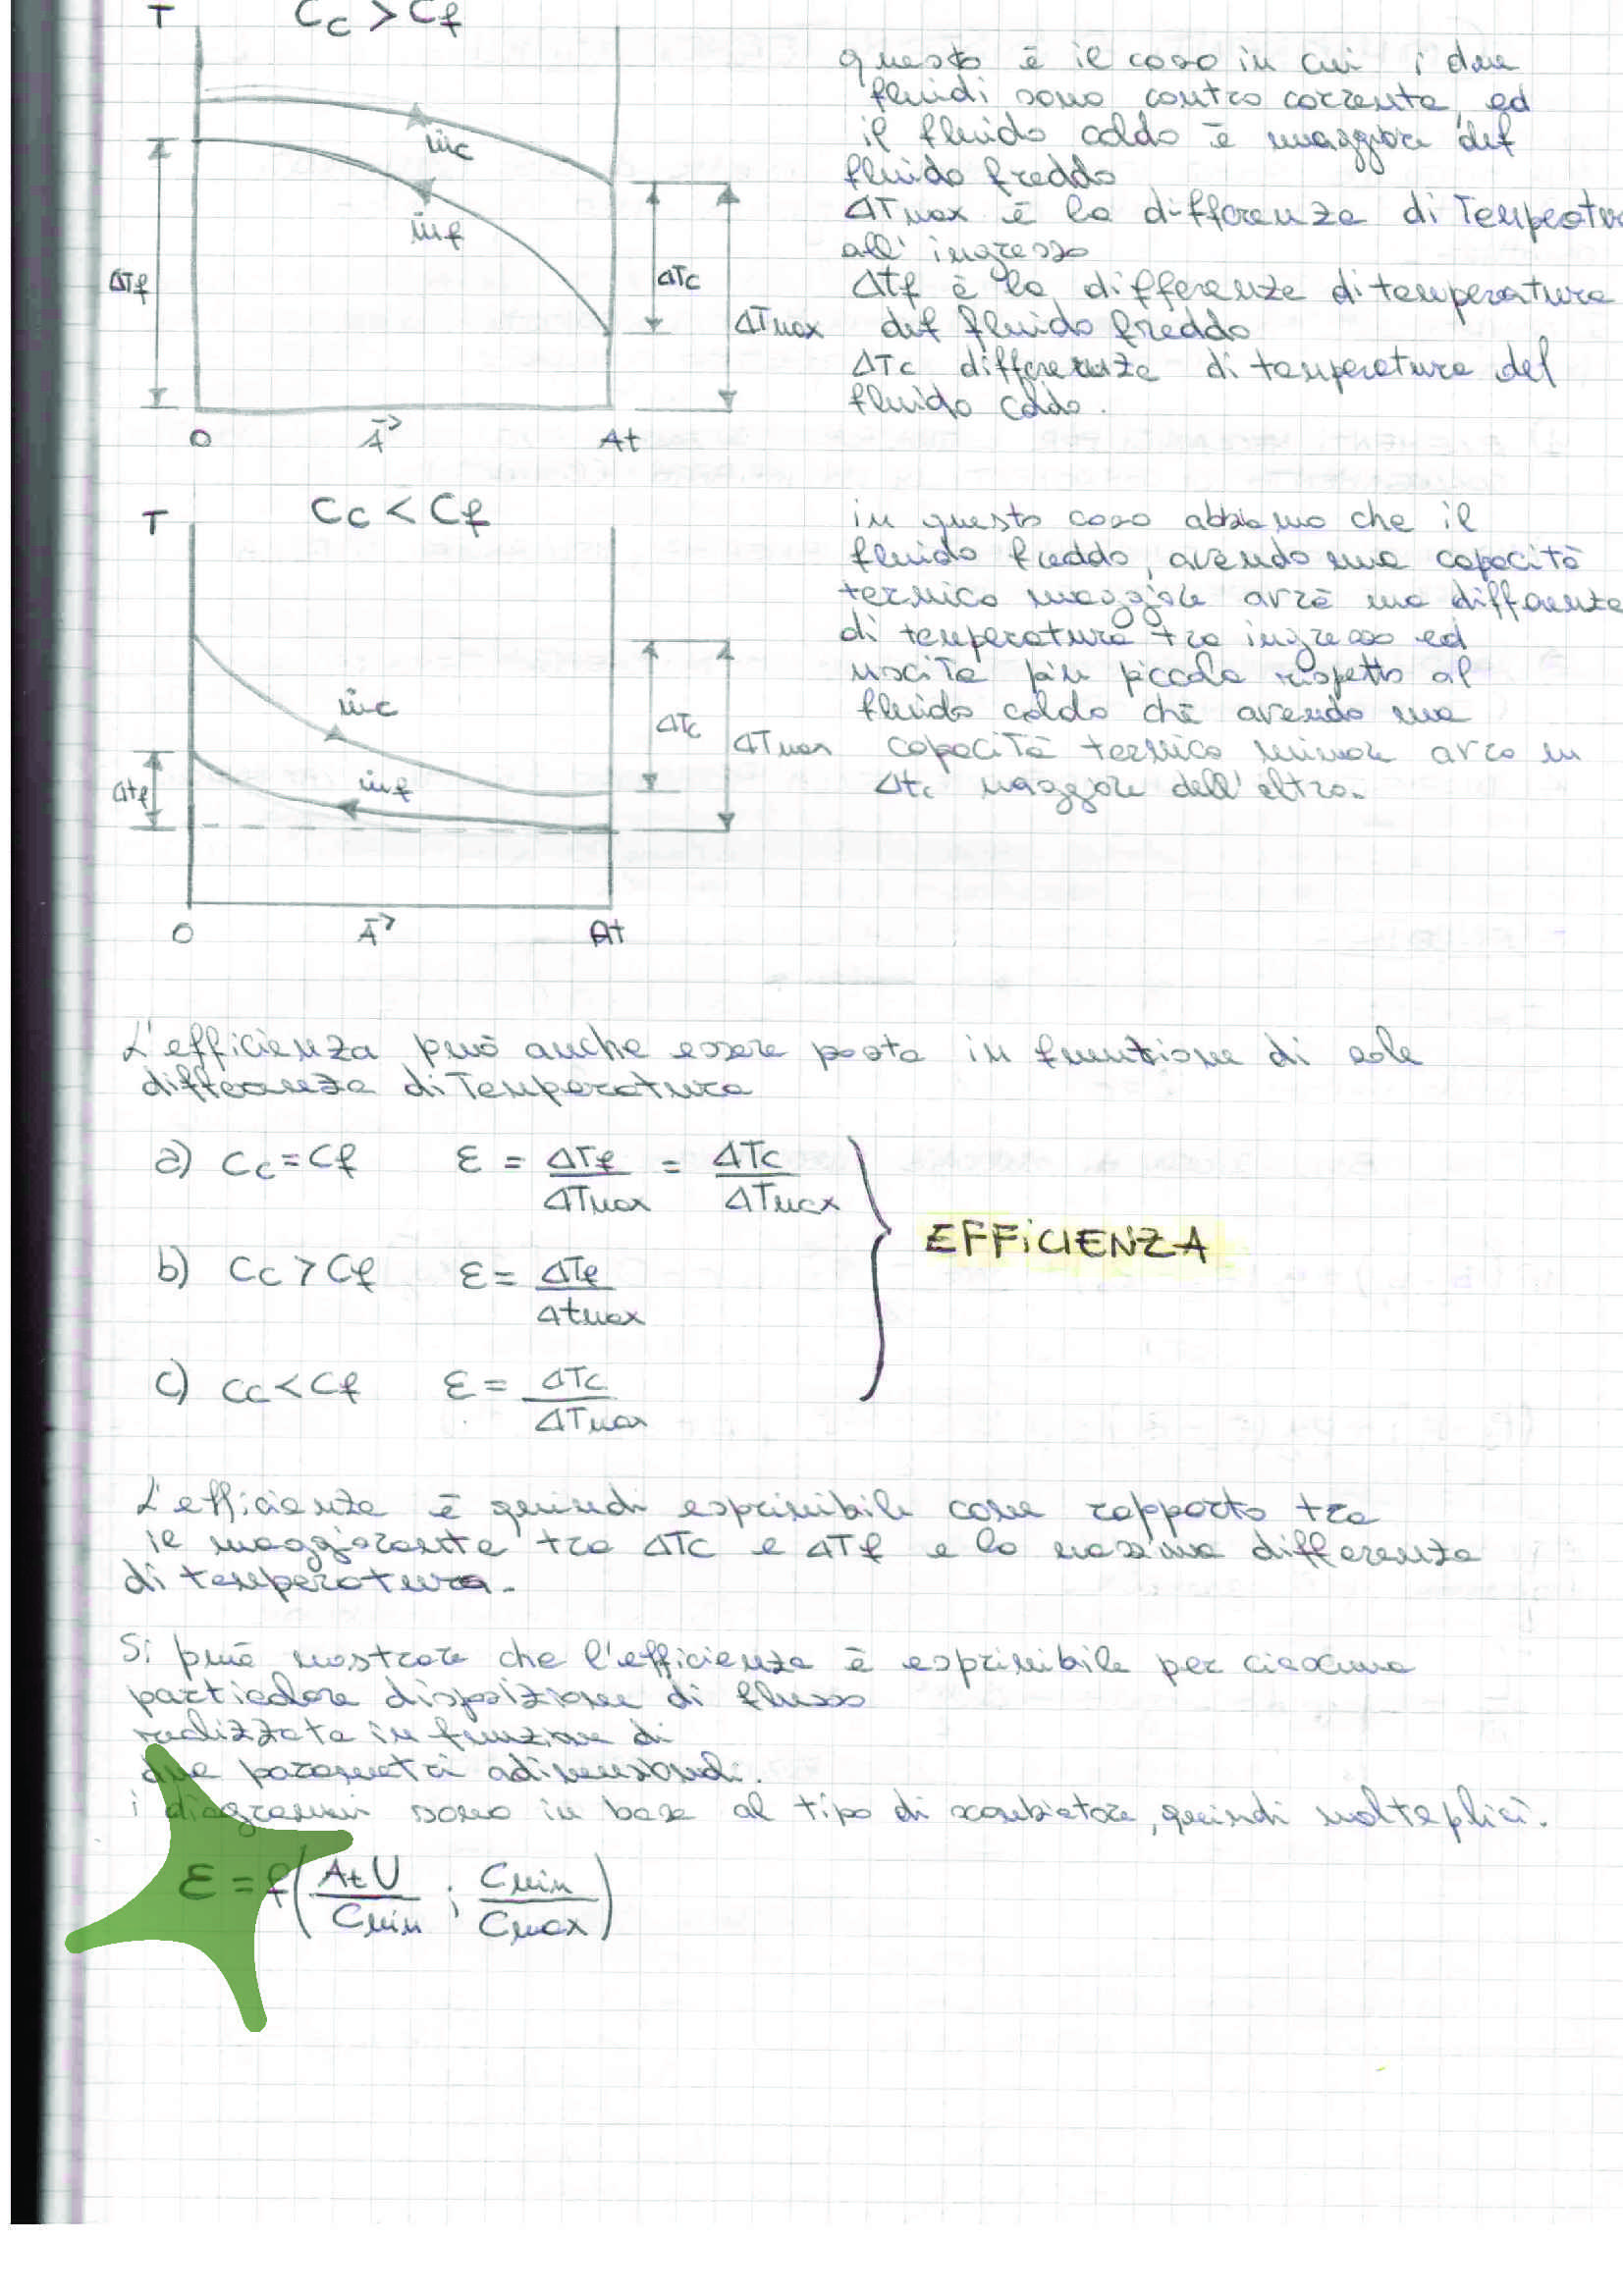 T
Cc > Cf
questo è il caso in cui i due
fluidi sono contro corrente, ed
il fluido caldo è maggiore del
fluido freddo
ΔTmax è la differenza di Temperatur
all'ingresso
Δtf è la differenza di temperatura
del fluido freddo
ΔTc differenza di temperatura del
fluido caldo.
ṁc
ṁf
ΔTf
ΔTc
ΔTmax
0
A→
At
T
Cc < Cf
in questo caso abbiamo che il
fluido freddo, avendo una capacità
termica maggiore avrà una differenza
di temperatura tra ingresso ed
uscita più piccola rispetto al
fluido caldo che avendo una
capacità termica minore avrà un
Δtc maggiore dell'altro.
ṁc
ṁf
Δtf
ΔTc
ΔTmax
0
A→
At
L'efficienza può anche essere posta in funzione di sole
differenze di Temperatura
a) Cc = Cf ε = ΔTf/ΔTmax = ΔTc/ΔTmax
EFFICIENZA
b) Cc > Cf ε = ΔTf/Δtmax
c) Cc < Cf ε = ΔTc/ΔTmax
L'efficienza è quindi esprimibile come rapporto tra
il maggiorante tra ΔTc e ΔTf e la massima differenza
di temperatura.
Si può mostrare che l'efficienza è esprimibile per ciascuna
particolare disposizione di flusso
realizzata in funzione di
due parametri adimensionali.
i diagrammi sono in base al tipo di scambiatore, quindi molteplici.
ε = f(AtU/Cmin ; Cmin/Cmax)